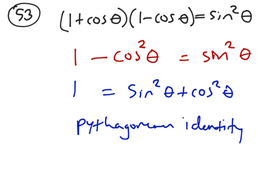 53 (1+cosθ)(1-cosθ)=sin²θ
1 - cos²θ = sin²θ
1 = sin²θ+cos²θ
pythagorean identity